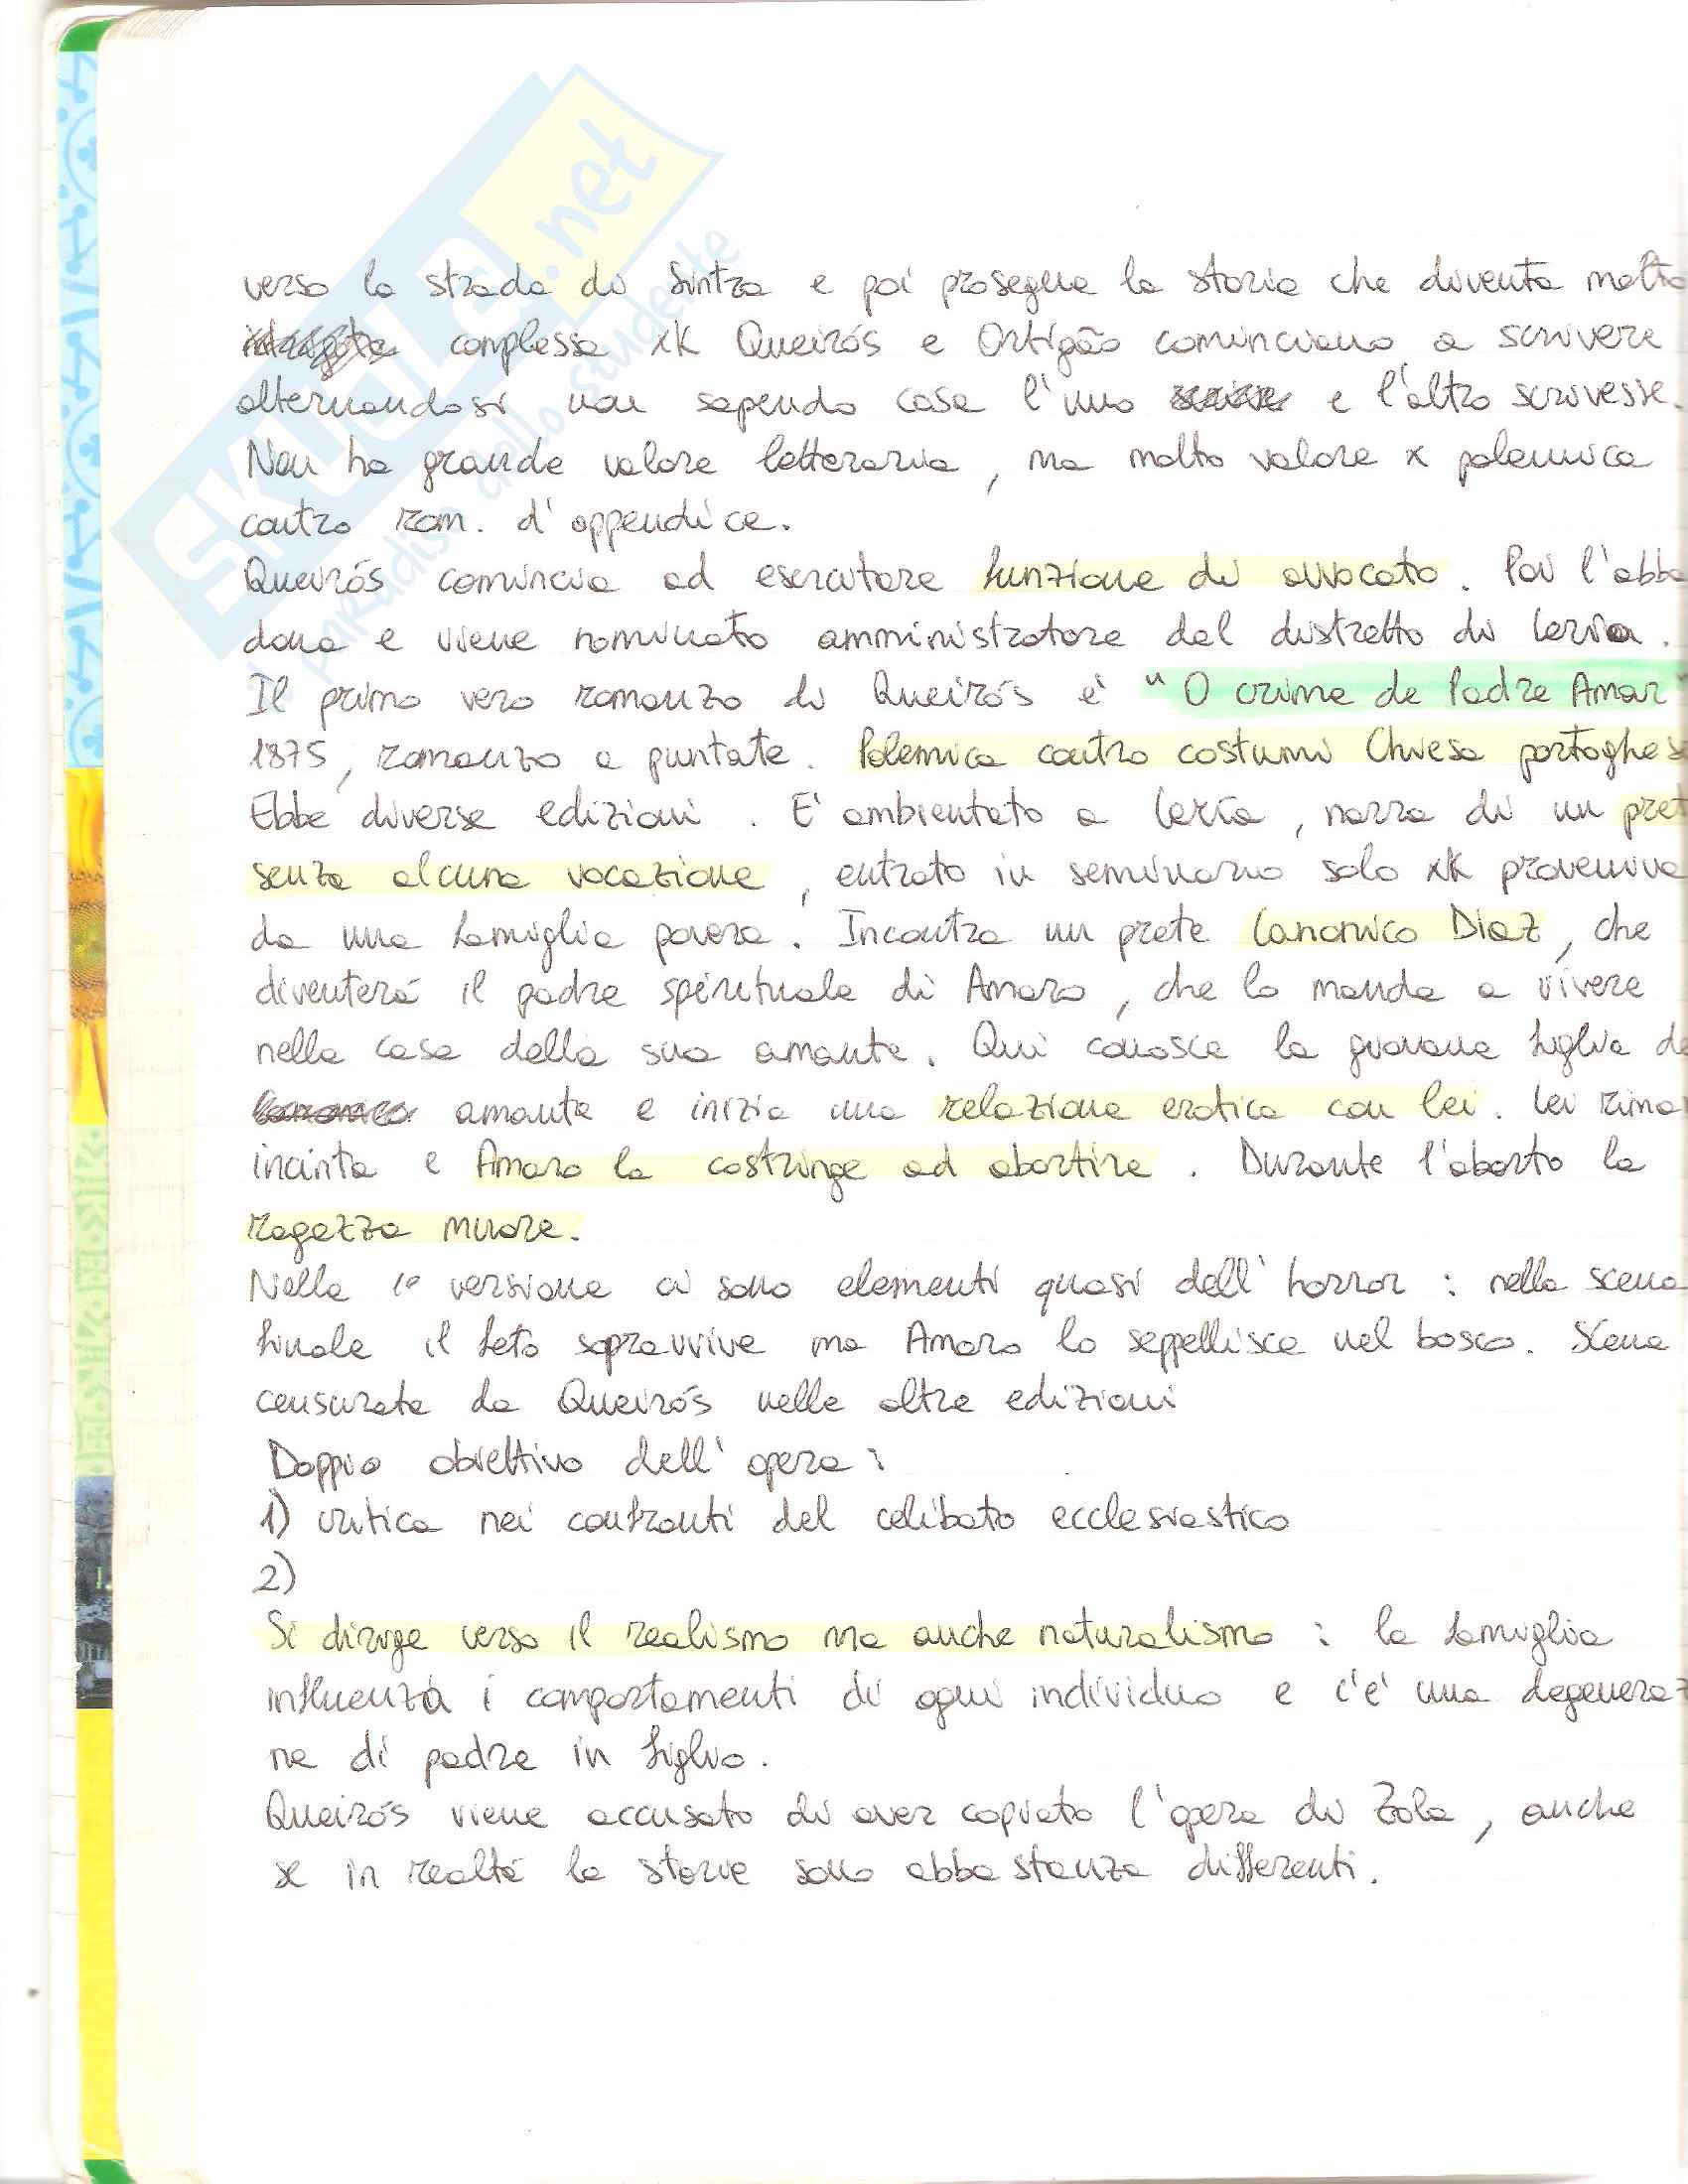 SKUOLA.net
Paradiso dello studente
verso la strada di Sintra e poi prosegue la storia che diventa molto
complessa xK Queirós e Ortigão cominciano a scrivere
alternandosi non sapendo cosa l'uno e l'altro scrivesse.
Non ha grande valore letterario, ma molto valore x polemica
contro rom. d'appendice.
Queirós comincia ad esercitare funzione di avvocato. Poi l'abba
dona e viene nominato amministratore del distretto di Leria.
Il primo vero romanzo di Queirós è "O crime de Padre Amar
1875, romanzo a puntate. Polemica contro costumi Chiesa portoghes
Ebbe diverse edizioni. È ambientato a Leria, narra di un pret
senza alcuna vocazione, entrato in seminario solo xK proveniva
da una famiglia povera. Incontra un prete Canonico Diaz, che
diventerà il padre spirituale di Amaro, che lo manda a vivere
nella casa della sua amante. Qui conosce la giovane figlia de
amante e inizia una relazione erotica con lei. Lei rima
incinta e Amaro la costringe ad abortire. Durante l'aborto la
ragazza muore.
Nella 1° versione ci sono elementi quasi dell'horror: nella scena
finale il feto sopravvive ma Amaro lo seppellisce nel bosco. Scena
censurata da Queirós nelle altre edizioni
Doppio obiettivo dell'opera:
1) critica nei confronti del celibato ecclesiastico
2)
Si dirige verso il realismo ma anche naturalismo: la famiglia
influenza i comportamenti di ogni individuo e c'è una degeneraz
ne di padre in figlio.
Queirós viene accusato di aver copiato l'opera di Zola, anche
se in realtà le storie sono abbastanza differenti.